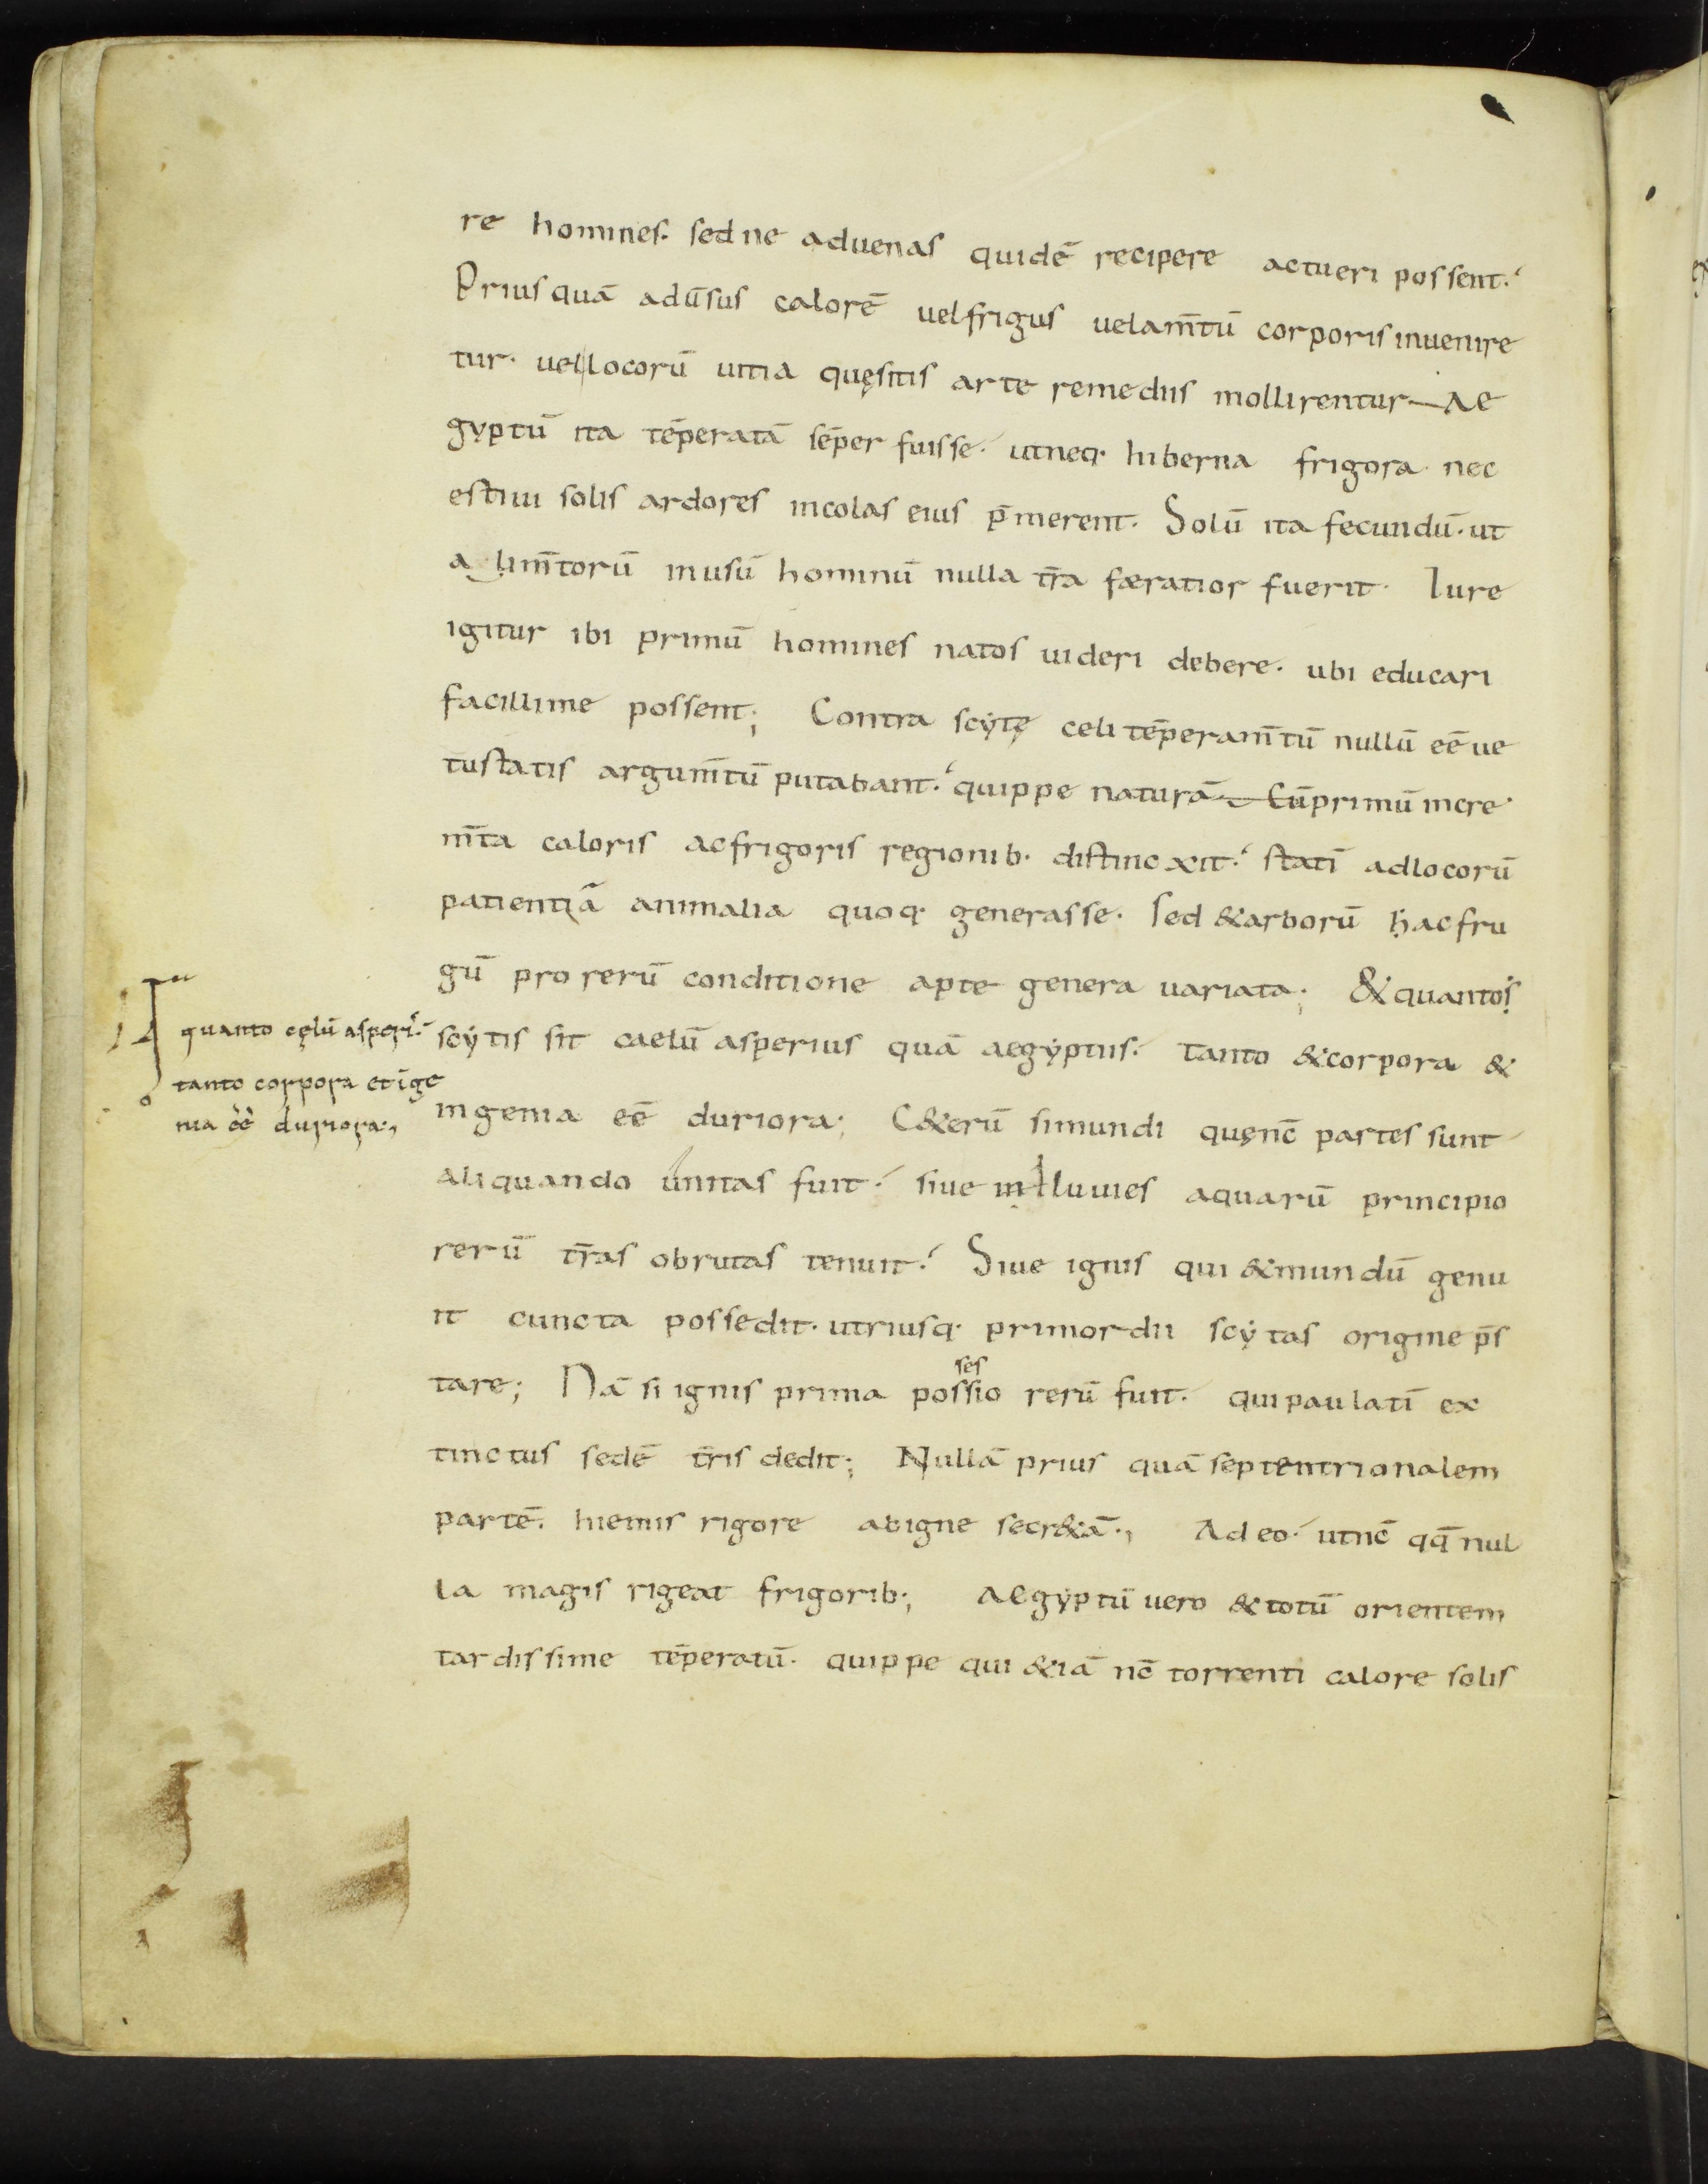 re homines. sed ne aduenas quidē recipere ac tueri possent.
Prius quā adūsus calorē uel frigus uelam̄tū corporis inuenire
tur. uel locorū uitia quęsitis arte remediis mollirentur Ae
gyptū ita tēperatā sēper fuisse. ut neq. hiberna frigora nec
estiui solis ardores incolas eius p̄merent. Solū ita fecundū. ut
alim̄torū in usū hominū nulla tr̄a feratior fuerit. Iure
igitur ibi primū homines natos uideri debere. ubi educari
facillime possent; Contra scẏtę celi tēperam̄tū nullū eē ue
tustatis argum̄tū putabant. quippe naturā. Cū primū incre
m̄ta caloris ac frigoris regionib. distincxit. statī ad locorū
patientiā animalia quoq. generasse. sed & arborū hac fru
gū pro rerū conditione apte genera uariata; & quantos
scẏtis sit caelū asperius quā aegẏptiis. tanto & corpora &
ingenia eē duriora; C&erū si mundi quęnc̄ partes sunt
aliquando unitas fuit. siue illuuies aquarū principio
rerū tr̄as obrutas tenuit. Siue ignis qui & mundū genu
it cuncta possedit. utriusq. primordii scẏtas origine p̄s
tare; Nā si ignis prima possessio rerū fuit. qui paulatī ex
tinctus sedē tr̄is dedit; Nullā prius quā septentrionalem
partē. hiemis rigore ab igne secr&ā., Adeo. ut nc̄ qq̄ nul
la magis rigeat frigorib; Aegẏptū uero & totū orientem
tardissime tēperatū. quippe qui &iā nc̄ torrenti calore solis
quanto cęlū asperi.
tanto corpora et īge
nia eē duriora.,